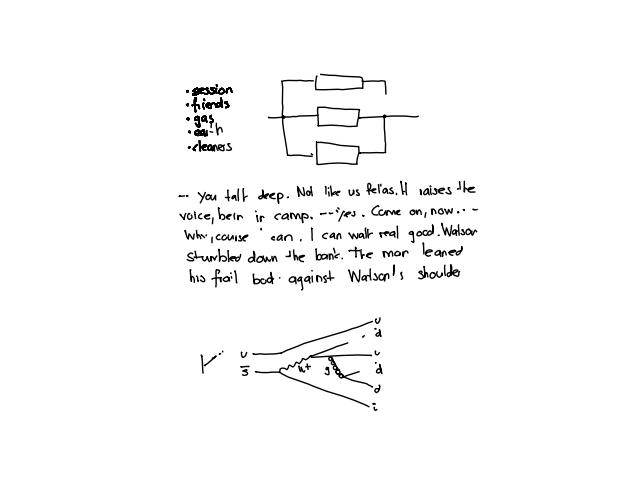 • session
• friends
• gas
• cleaners
... You talk deep. Not like us fellas. It raises the
voice, bein in camp. --- Yes. Come on, now. . . -
Why, course can. I can walk real good. Watson
stumbled down the bank. The man leaned
his frail body against Watson's shoulder
u
d
u
u
s̅
W+
g
d
d